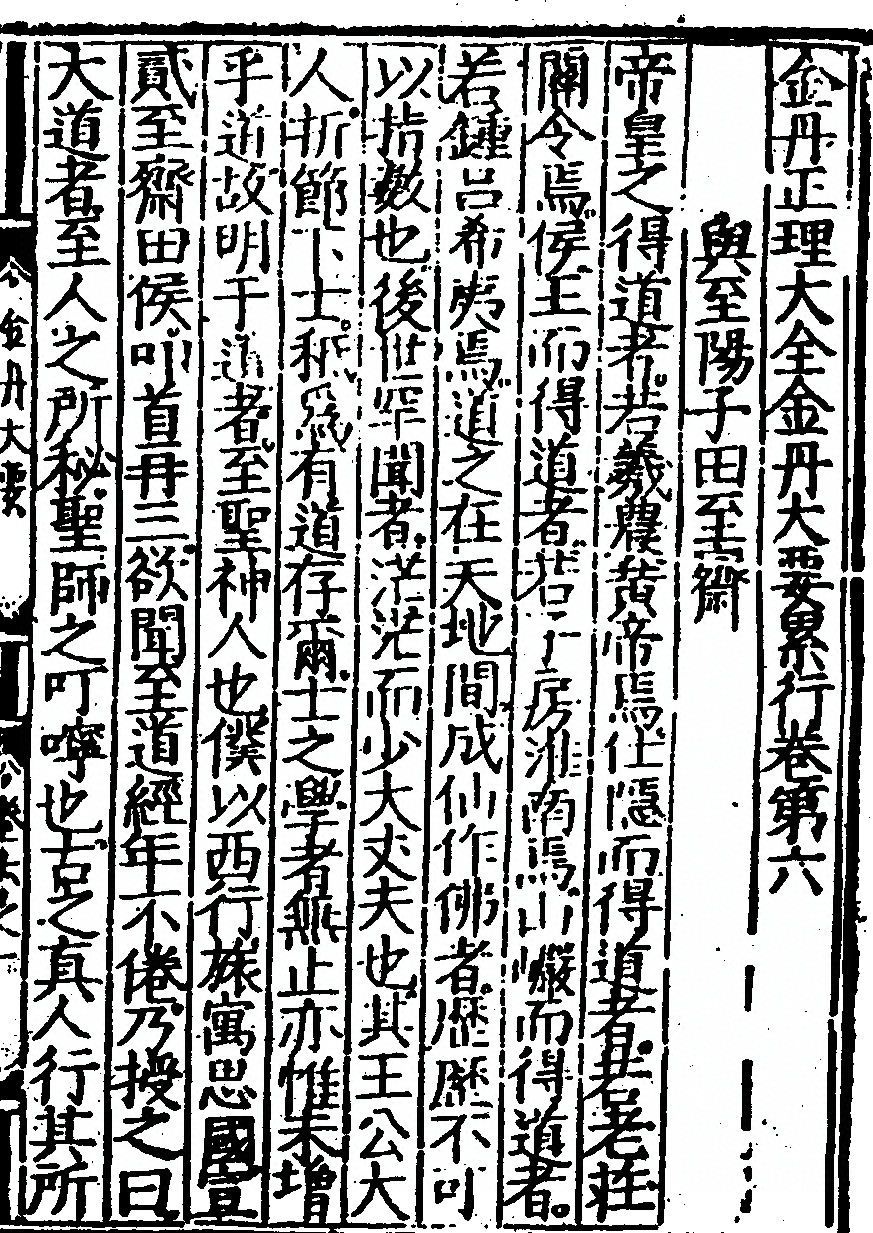 金丹正理大全金丹大要累行卷第六
與至陽子田至齋
帝皇之得道者若羲農黃帝焉仕隱而得道者若老莊
關令焉侯王而得道者若子房淮南焉山巖而得道者
若鍾呂希夷焉道之在天地間成仙作佛者歷歷不可
以指數也後世罕聞者茫茫而少大丈夫也其王公大
人折節下士秪為有道存爾士之學者無止亦惟未增
乎道故明于道者至聖神人也僕以西行旅寓思國宣
貳至齋田侯叩首再三欲聞至道經年不倦乃授之曰
大道者至人之所秘聖師之叮嚀也古之真人行其所
金丹大要